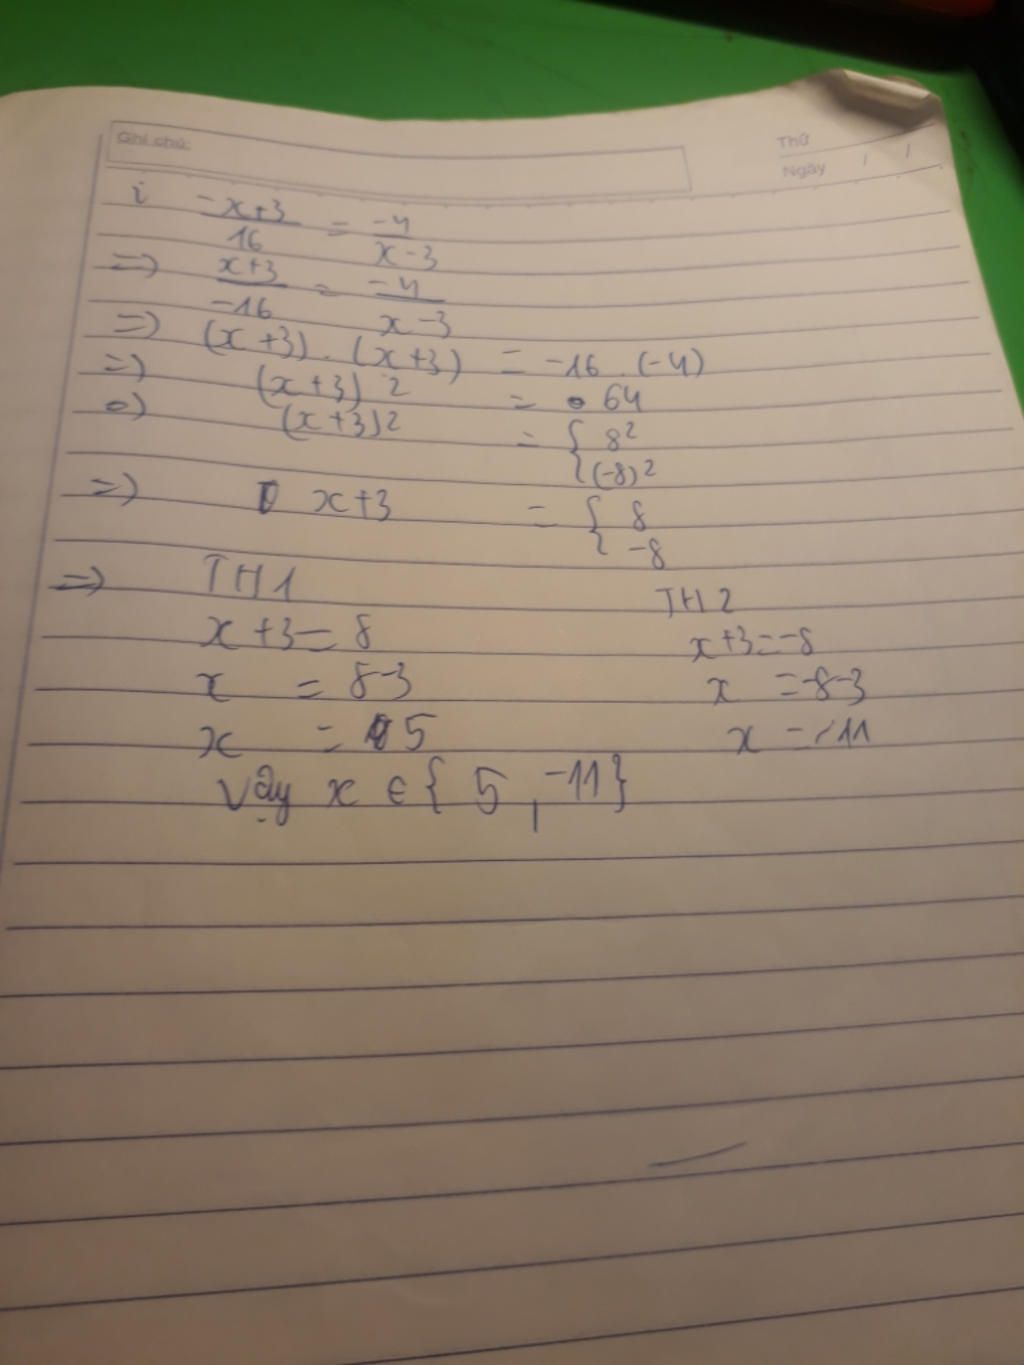 Ghi chú:
Thứ
Ngày / /
i -x+3/16 = -4/x-3
=) x+3/-16 = -4/x-3
=) (x+3).(x+3) = -16.(-4)
=) (x+3)2 = 64
=) (x+3)2 = { 8²
(-8)²
=) x+3 = { 8
-8
=) TH1 TH2
x+3=8 x+3=-8
x = 8-3 x = -8-3
x = 5 x = -11
Vậy x ∈ { 5 , -11}